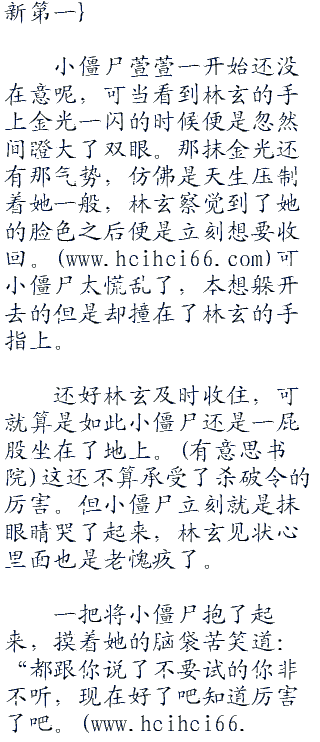 新第一}
小僵尸萱萱一开始还没
在意呢，可当看到林玄的手
上金光一闪的时候便是忽然
间瞪大了双眼。那抹金光还
有那气势，仿佛是天生压制
着她一般，林玄察觉到了她
的脸色之后便是立刻想要收
回。(www.hcihci66.com)可
小僵尸太慌乱了，本想躲开
去的但是却撞在了林玄的手
指上。
还好林玄及时收住，可
就算是如此小僵尸还是一屁
股坐在了地上。(有意思书
院)这还不算承受了杀破令的
厉害。但小僵尸立刻就是抹
眼睛哭了起来，林玄见状心
里面也是老愧疚了。
一把将小僵尸抱了起
来，摸着她的脑袋苦笑道：
“都跟你说了不要试的你非
不听，现在好了吧知道厉害
了吧。(www.hcihci66.